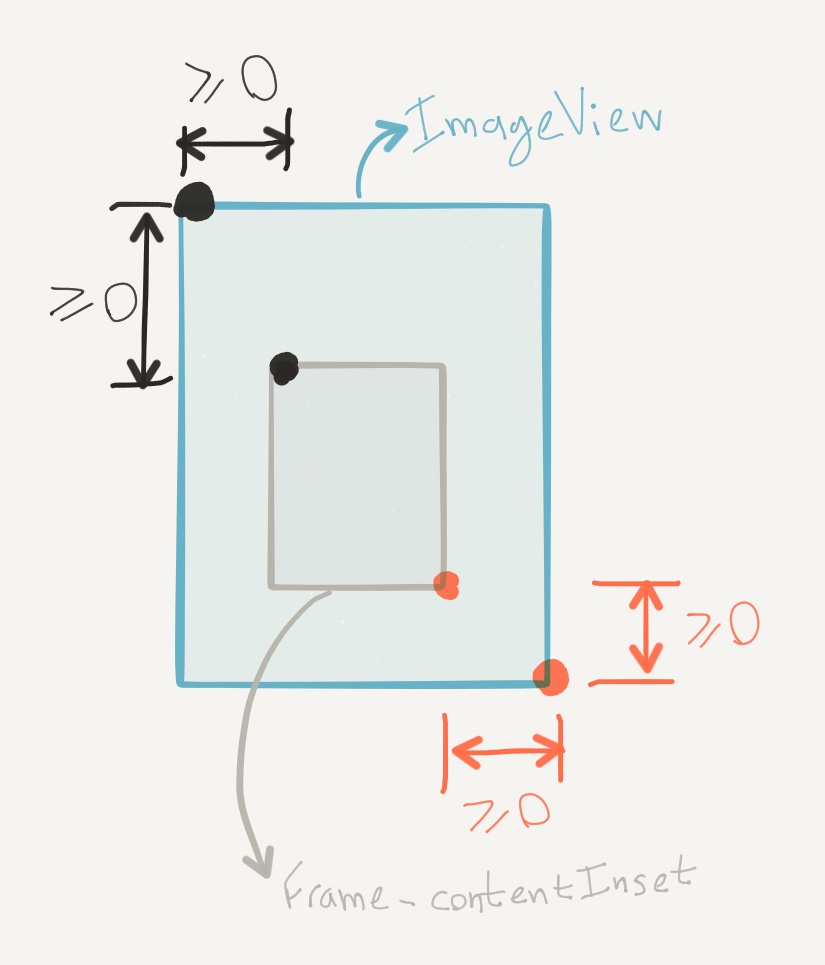 ⩾0
ImageView
⩾0
⩾0
⩾0
Frame-contentInset